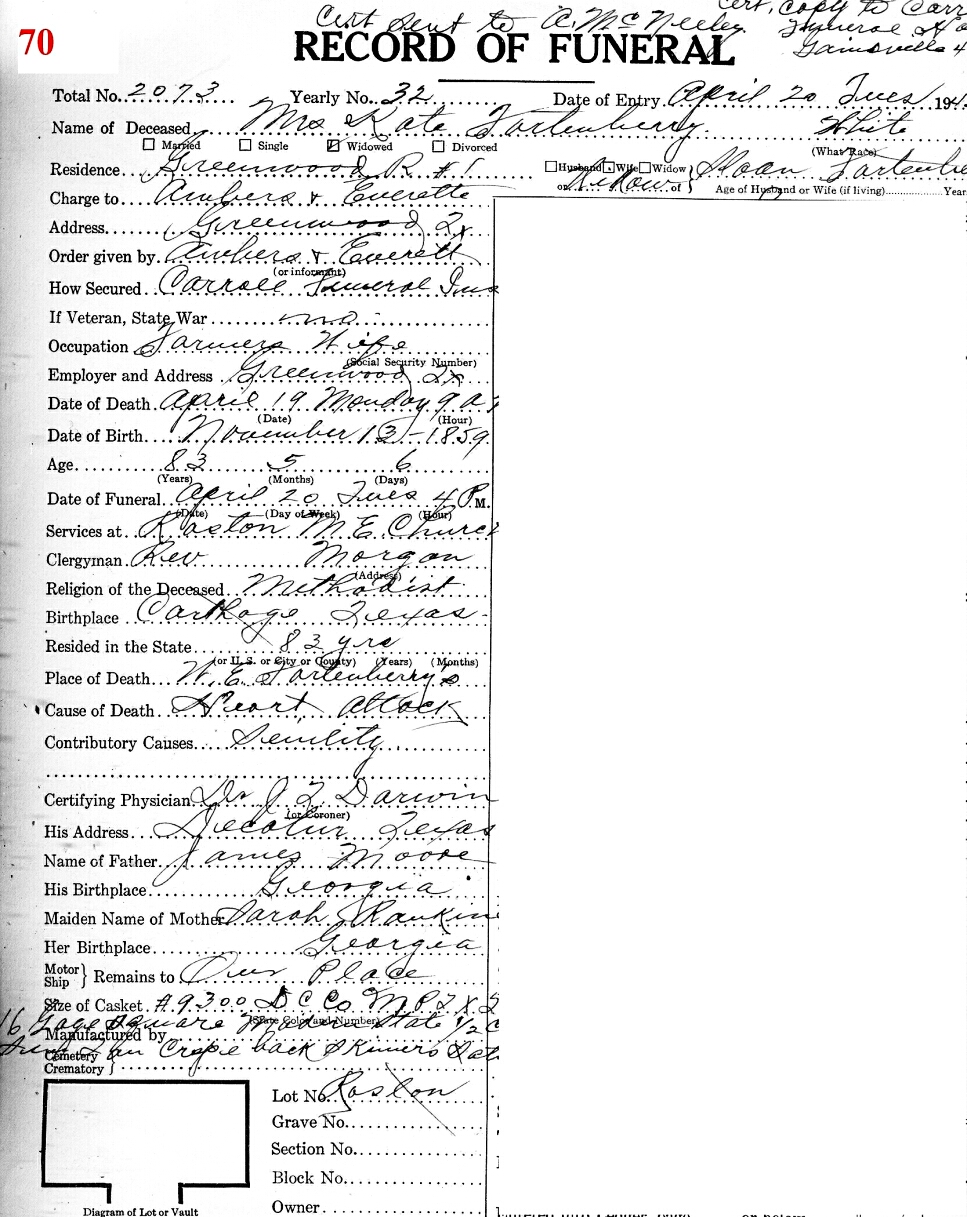 Cert, Copy to Carr
Cert sent to A. McNeeley Funeral Ho
70
Gainsville
RECORD OF FUNERAL
Total No. 2073 Yearly No. 32 Date of Entry April 20 Tues 194
Name of Deceased Mrs Kate Fortenberry. White
Married Single Widowed Divorced (What Race)
Residence Greenwood R #1 Husband Wife Widow Sloan Fortenbe
or Widow of Age of Husband or Wife (if living) Year
Charge to Ambers & Everette
Address Greenwood Tx
Order given by Ambers & Everett
(or informant)
How Secured Carroll Funeral Ins
If Veteran, State War no
Occupation Farmers Wife
(Social Security Number)
Employer and Address Greenwood Tx
Date of Death April 19 Monday 9 A
(Date) (Hour)
Date of Birth November 13-1859
Age 83 5 6
(Years) (Months) (Days)
Date of Funeral April 20 Tues 4 P M.
(Date) (Day of Week) (Hour)
Services at Raston M. E. Church
Clergyman Rev Morgan
(Address)
Religion of the Deceased Methodist
Birthplace Carthage Texas
Resided in the State 83 yrs
(or U. S. or City or County) (Years) (Months)
Place of Death W. E. Fortenberry's
Cause of Death Heart Attack
Contributory Causes Senility
Certifying Physician Dr J. T Darwin
(or Coroner)
His Address Decatur Texas
Name of Father James Moore
His Birthplace Georgia
Maiden Name of Mother Sarah Rankin
Her Birthplace Georgia
Motor Ship } Remains to Our Place
Size of Casket #9300 D C Co M P 2 X 2
(State Color and Number)
16 Gage Square State 1/2 C
Manufactured by
Crepe back Skinners Sat
Cemetery
Crematory }
Lot No. Raston
Grave No.
Section No.
Block No.
Owner
Diagram of Lot or Vault